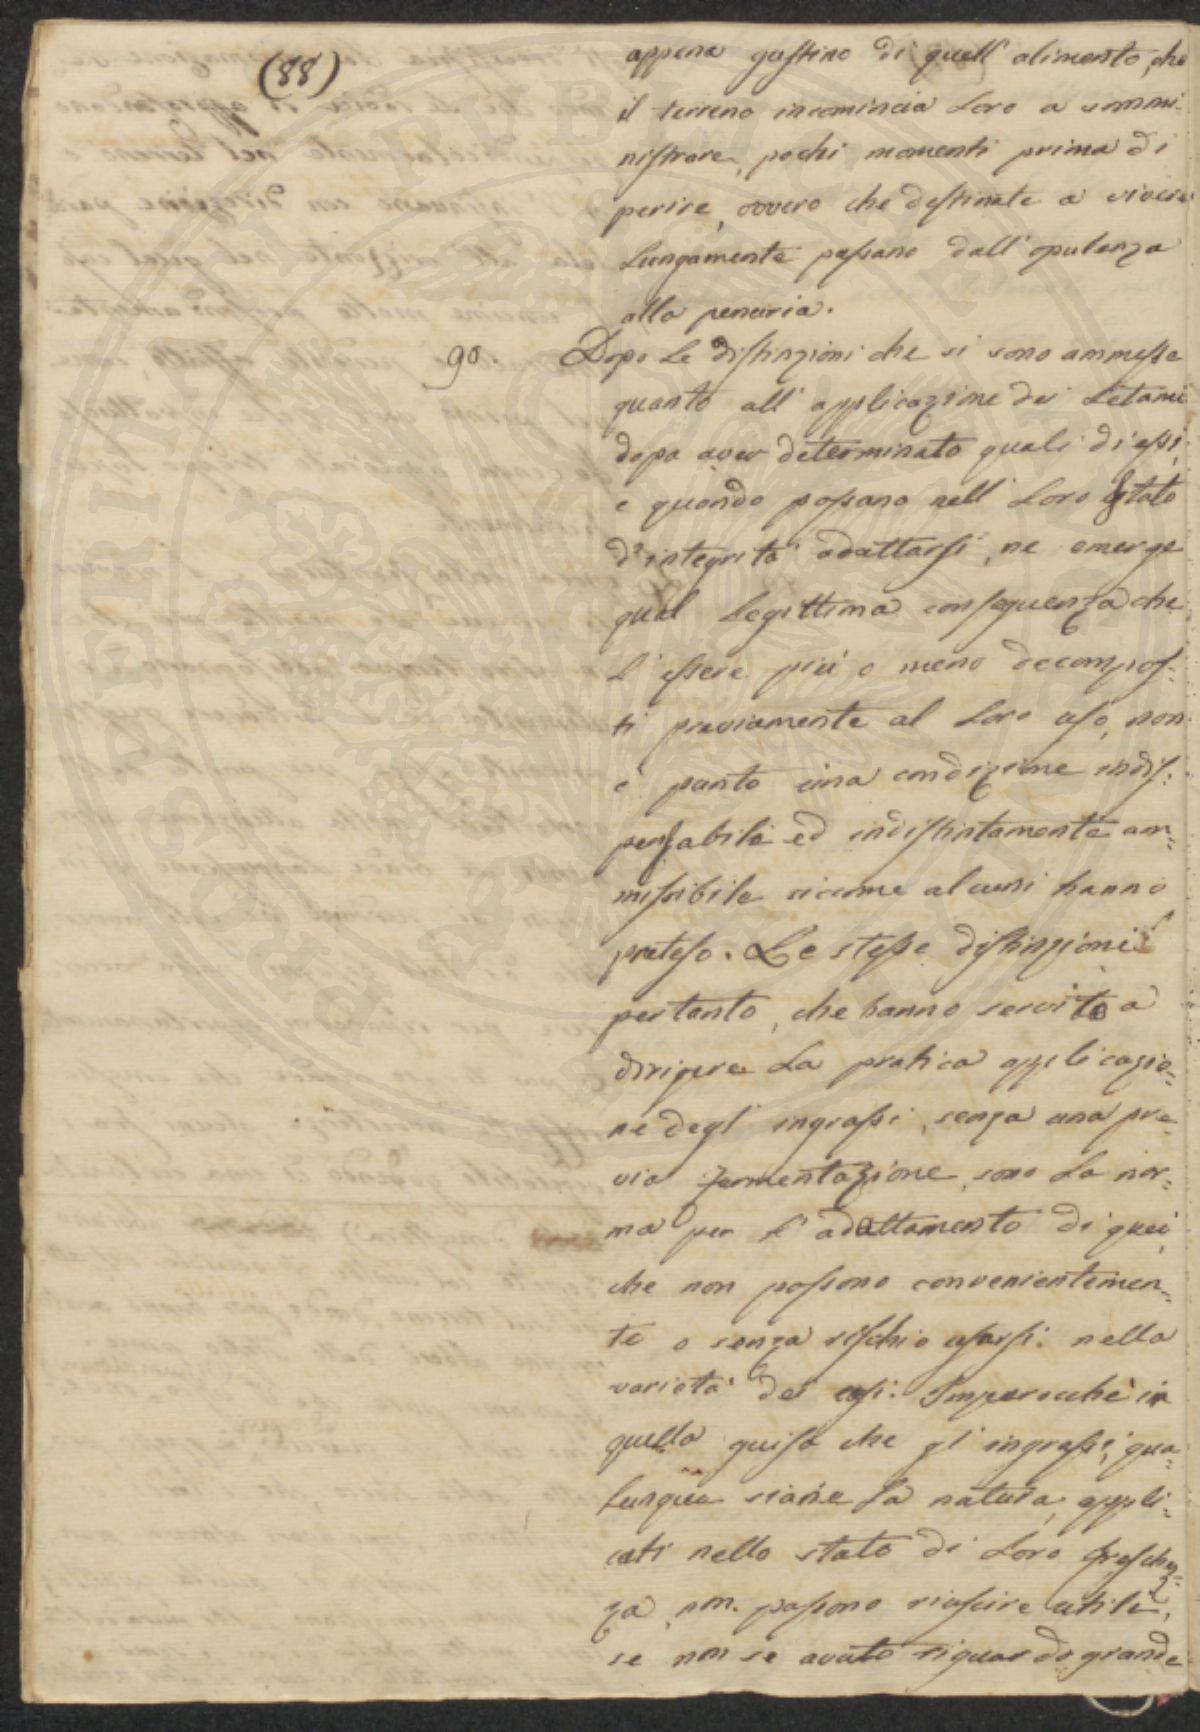 (88)
appena gustino di quell' alimento, che
il terreno incomincia Loro a sommi-
nistrare, pochi momenti prima di
perire, ovvero che destinate a vivere
Lungamente passano dall' opulenza
alla penuria.
90. Dopo Le distinzioni che si sono ammesse
quanto all' applicazione dei Letami
dopo aver determinato quali di essi,
e quando possano nell' Loro stato
d'integrità adattarsi, ne emerge
qual Legittima conseguenza che
L' essere più o meno decompos=
ti previamente al Loro uso, non
è punto una condizione indis=
pensabile ed indistintamente am=
missibile siccome alcuni hanno
preteso. Le stesse distinzioni
pertanto, che hanno servito a
dirigere La pratica applicazio=
ne degl' ingrassi, senza una pre=
via fermentazione, sono La nor=
ma per L' adattamento di quei,
che non possono convenientemen=
te o senza rischio usarsi: nella
varietà dei casi. Imperocchè in
quella guisa che gl' ingrassi, qua=
Lunque siane La natura, appli=
cati nello stato di Loro freschez=
za, non possono riuscire utili,
se non se avuto riguardo grande